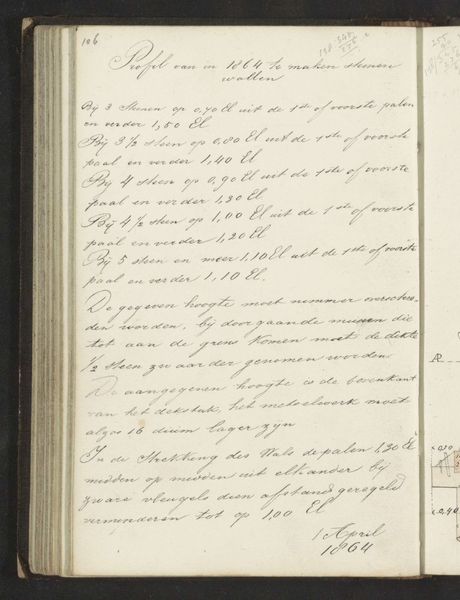 106
Profil van in 1864 te maken steenen
wallen
Bij 3 Steenen op 0,70 El uit de 1ste of voorste palen
en verder 1,50 El
Bij 3 1/2 steen op 0,80 El uit de 1ste of voorste
paal en verder 1,40 El
Bij 4 steen op 0,90 El uit de 1ste of voorste
paal en verder 1,30 El
Bij 4 1/2 steen op 1,00 El uit de 1ste of voorste
paal en verder 1,20 El
Bij 5 steen en meer 1,10 El uit de 1ste of voorste
paal en verder 1,10 El.
De gegeven hoogte moet nummer overschre-
den worden, bij doorgaande muuren die
tot aan de grens komen moet de dikte
1/2 steen zwaarder genomen worden
De aangegeven hoogte is de bovenkant
van het dekstuk, het metselwerk moet
alzoo 16 duim lager zyn
In de Strekking des Wals de palen 1,30 El
midden op midden uit elkander bij
zware vleugels dien afstand geregeld
verminderen tot op 1,00 El
1 April
1864
Æ